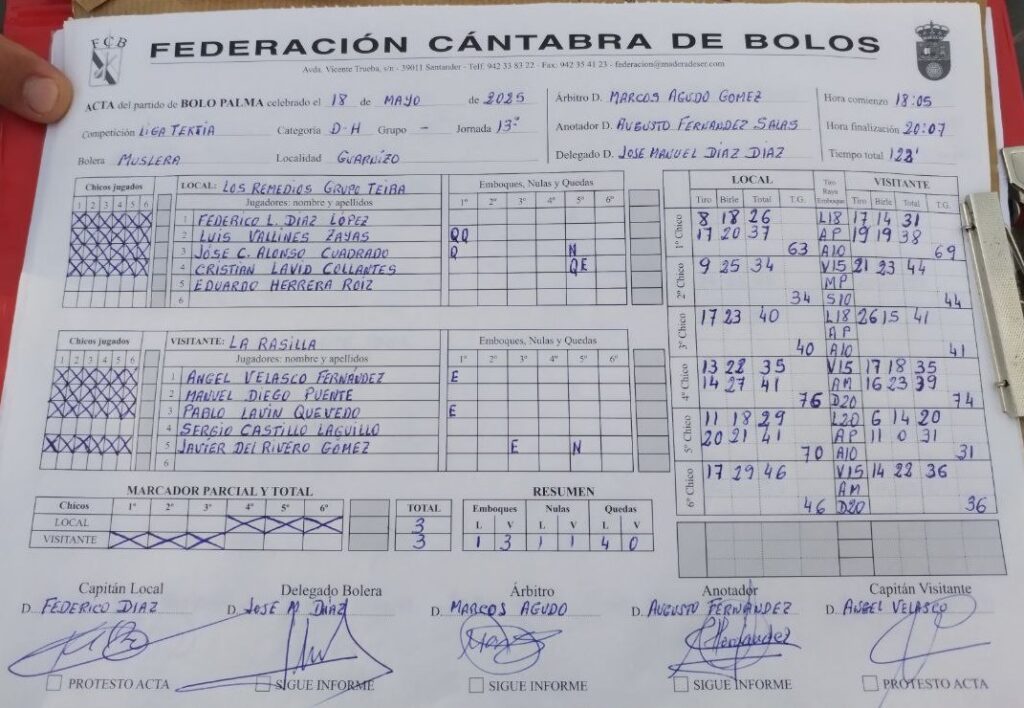 FCB
FEDERACIÓN CÁNTABRA DE BOLOS
Avda. Vicente Trueba, s/n - 39011 Santander - Telf. 942 33 83 22 - Fax: 942 35 41 23 - federacion@maderadeser.com
ACTA del partido de BOLO PALMA celebrado el 18 de MAYO de 2025
Competición LIGA TERTIA Categoría D-H Grupo - Jornada 13ª
Bolera MUSLERA Localidad GUARNIZO
Árbitro D. MARCOS AGUDO GOMEZ
Anotador D. AUGUSTO FERNANDEZ SALAS
Delegado D. JOSE MANUEL DIAZ DIAZ
Hora comienzo 18:05
Hora finalización 20:07
Tiempo total 122'
Chicos jugados LOCAL: LOS REMEDIOS GRUPO TEIBA Emboques, Nulas y Quedas
1 2 3 4 5 6 Jugadores: nombre y apellidos 1º 2º 3º 4º 5º 6º
1 FEDERICO L. DIAZ LÓPEZ
2 LUIS VALLINES ZAYAS QQ
3 JOSE C. ALONSO CUADRADO Q N
4 CRISTIAN LAVID COLLANTES QE
5 EDUARDO HERRERA ROIZ
6
Chicos jugados VISITANTE: LA RASILLA Emboques, Nulas y Quedas
1 2 3 4 5 6 Jugadores: nombre y apellidos 1º 2º 3º 4º 5º 6º
1 ANGEL VELASCO FERNÁNDEZ E
2 MANUEL DIEGO PUENTE
3 PABLO LAVIN QUEVEDO E
4 SERGIO CASTILLO LAGUILLO
5 JAVIER DEL RIVERO GÓMEZ E N
6
LOCAL Tiro Raya Emboque VISITANTE
Tiro Birle Total T.G. Tiro Birle Total T.G.
1º Chico
8 18 26 L18 17 14 31
17 20 37 AP 19 19 38
63 A10 69
2º Chico
9 25 34 V15 21 23 44
MP
34 S10 44
3º Chico
17 23 40 L18 26 15 41
AP
40 A10 41
4º Chico
13 22 35 V15 17 18 35
14 27 41 AM 16 23 39
76 D20 74
5º Chico
11 18 29 L20 6 14 20
20 21 41 AP 11 0 31
70 A10 31
6º Chico
17 29 46 V15 14 22 36
AM
46 D20 36
MARCADOR PARCIAL Y TOTAL
Chicos 1º 2º 3º 4º 5º 6º TOTAL
LOCAL 3
VISITANTE 3
RESUMEN
Emboques Nulas Quedas
L V L V L V
1 3 1 1 4 0
Capitán Local Delegado Bolera Árbitro Anotador Capitán Visitante
D. FEDERICO DIAZ D. JOSE M. DIAZ D. MARCOS AGUDO D. AUGUSTO FERNANDEZ D. ANGEL VELASCO
PROTESTO ACTA SIGUE INFORME SIGUE INFORME SIGUE INFORME PROTESTO ACTA